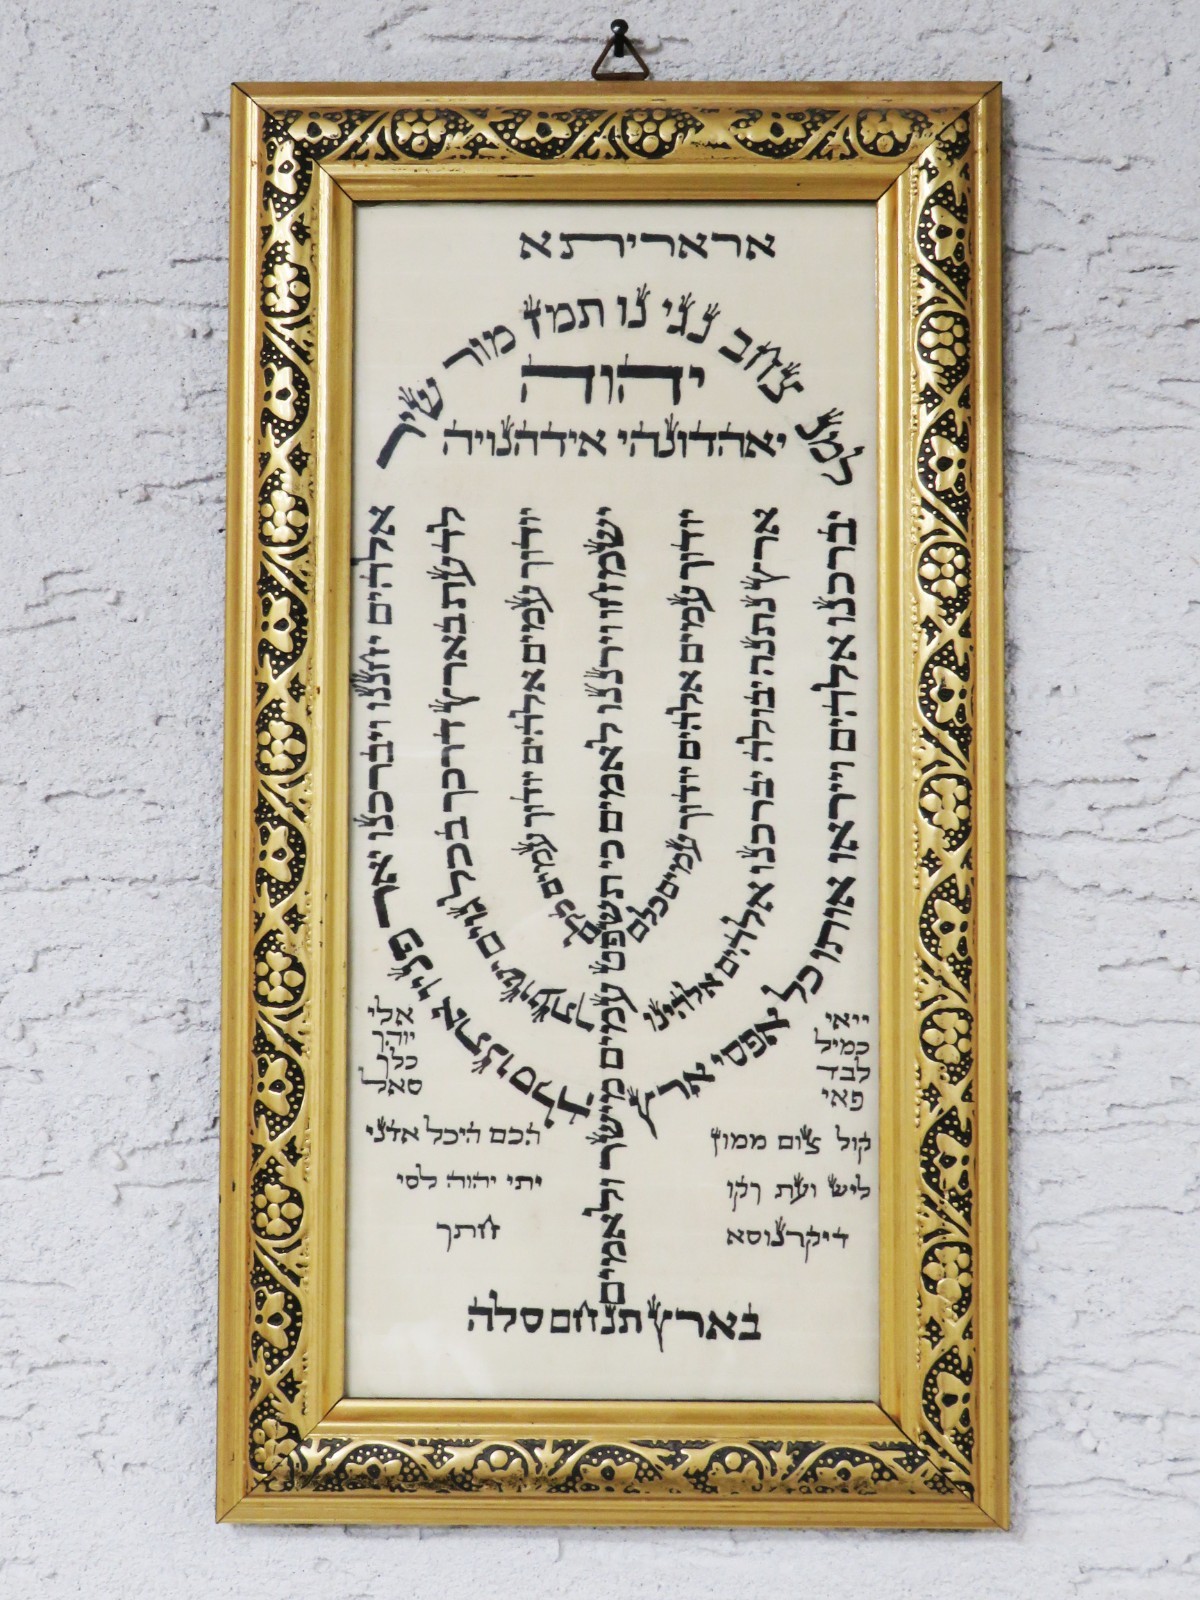 אראריתא
למנ צחב נגי נו תמז מור שיר
יהוה
יאהדונהי אידהנויה
יברכנו אלהים וייראו אותו כל אפסי ארץ
ארץ נתנה יבולה יברכנו אלהים אלהינו
יודוך עמים אלהים יודוך עמים כלם
ישמחו וירננו לאמים כי תשפט עמים מישר ולאמים
יודוך עמים אלהים יודוך עמים כלם
לדעת בארץ דרכך בכל גוים ישועתך
אלהים יחננו ויברכנו יאר פניו אתנו סלה
ייאי
כמיל
לבד
פאי
קול צום ממון
ליש ועת רקו
דיקרנוסא
אלי
יוהך
כלך
סאל
הכם היכל אדני
יתי יהוה לסי
חתך
בארץ תנחם סלה